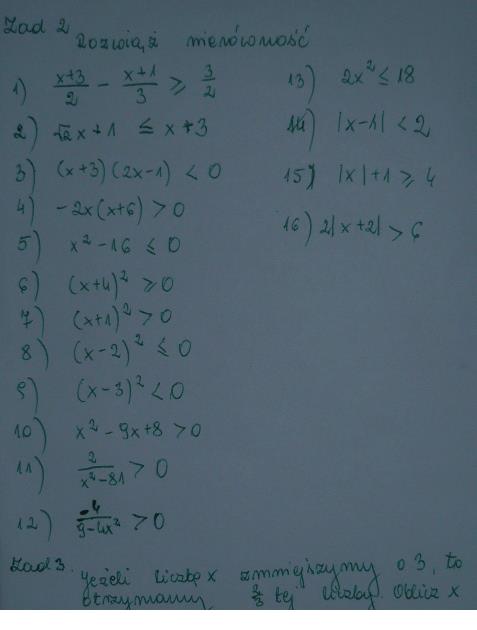 Zad 2
Rozwiąż nierówność
1) x+3/2 - x+1/3 ≥ 3/2
2) √2x+1 ≤ x+3
3) (x+3)(2x-1) < 0
4) -2x(x+6) > 0
5) x²-16 ≤ 0
6) (x+4)² ≥ 0
7) (x+1)² > 0
8) (x-2)² ≤ 0
9) (x-3)² < 0
10) x²-9x+8 > 0
11) 2/x²-81 > 0
12) -4/9-4x² > 0
13) 2x² ≤ 18
14) |x-1| < 2
15) |x|+1 ≥ 4
16) 2|x+2| > 6
Zad 3. Jeżeli liczbę x zmniejszymy o 3, to
otrzymamy 2/3 tej liczby. Oblicz x